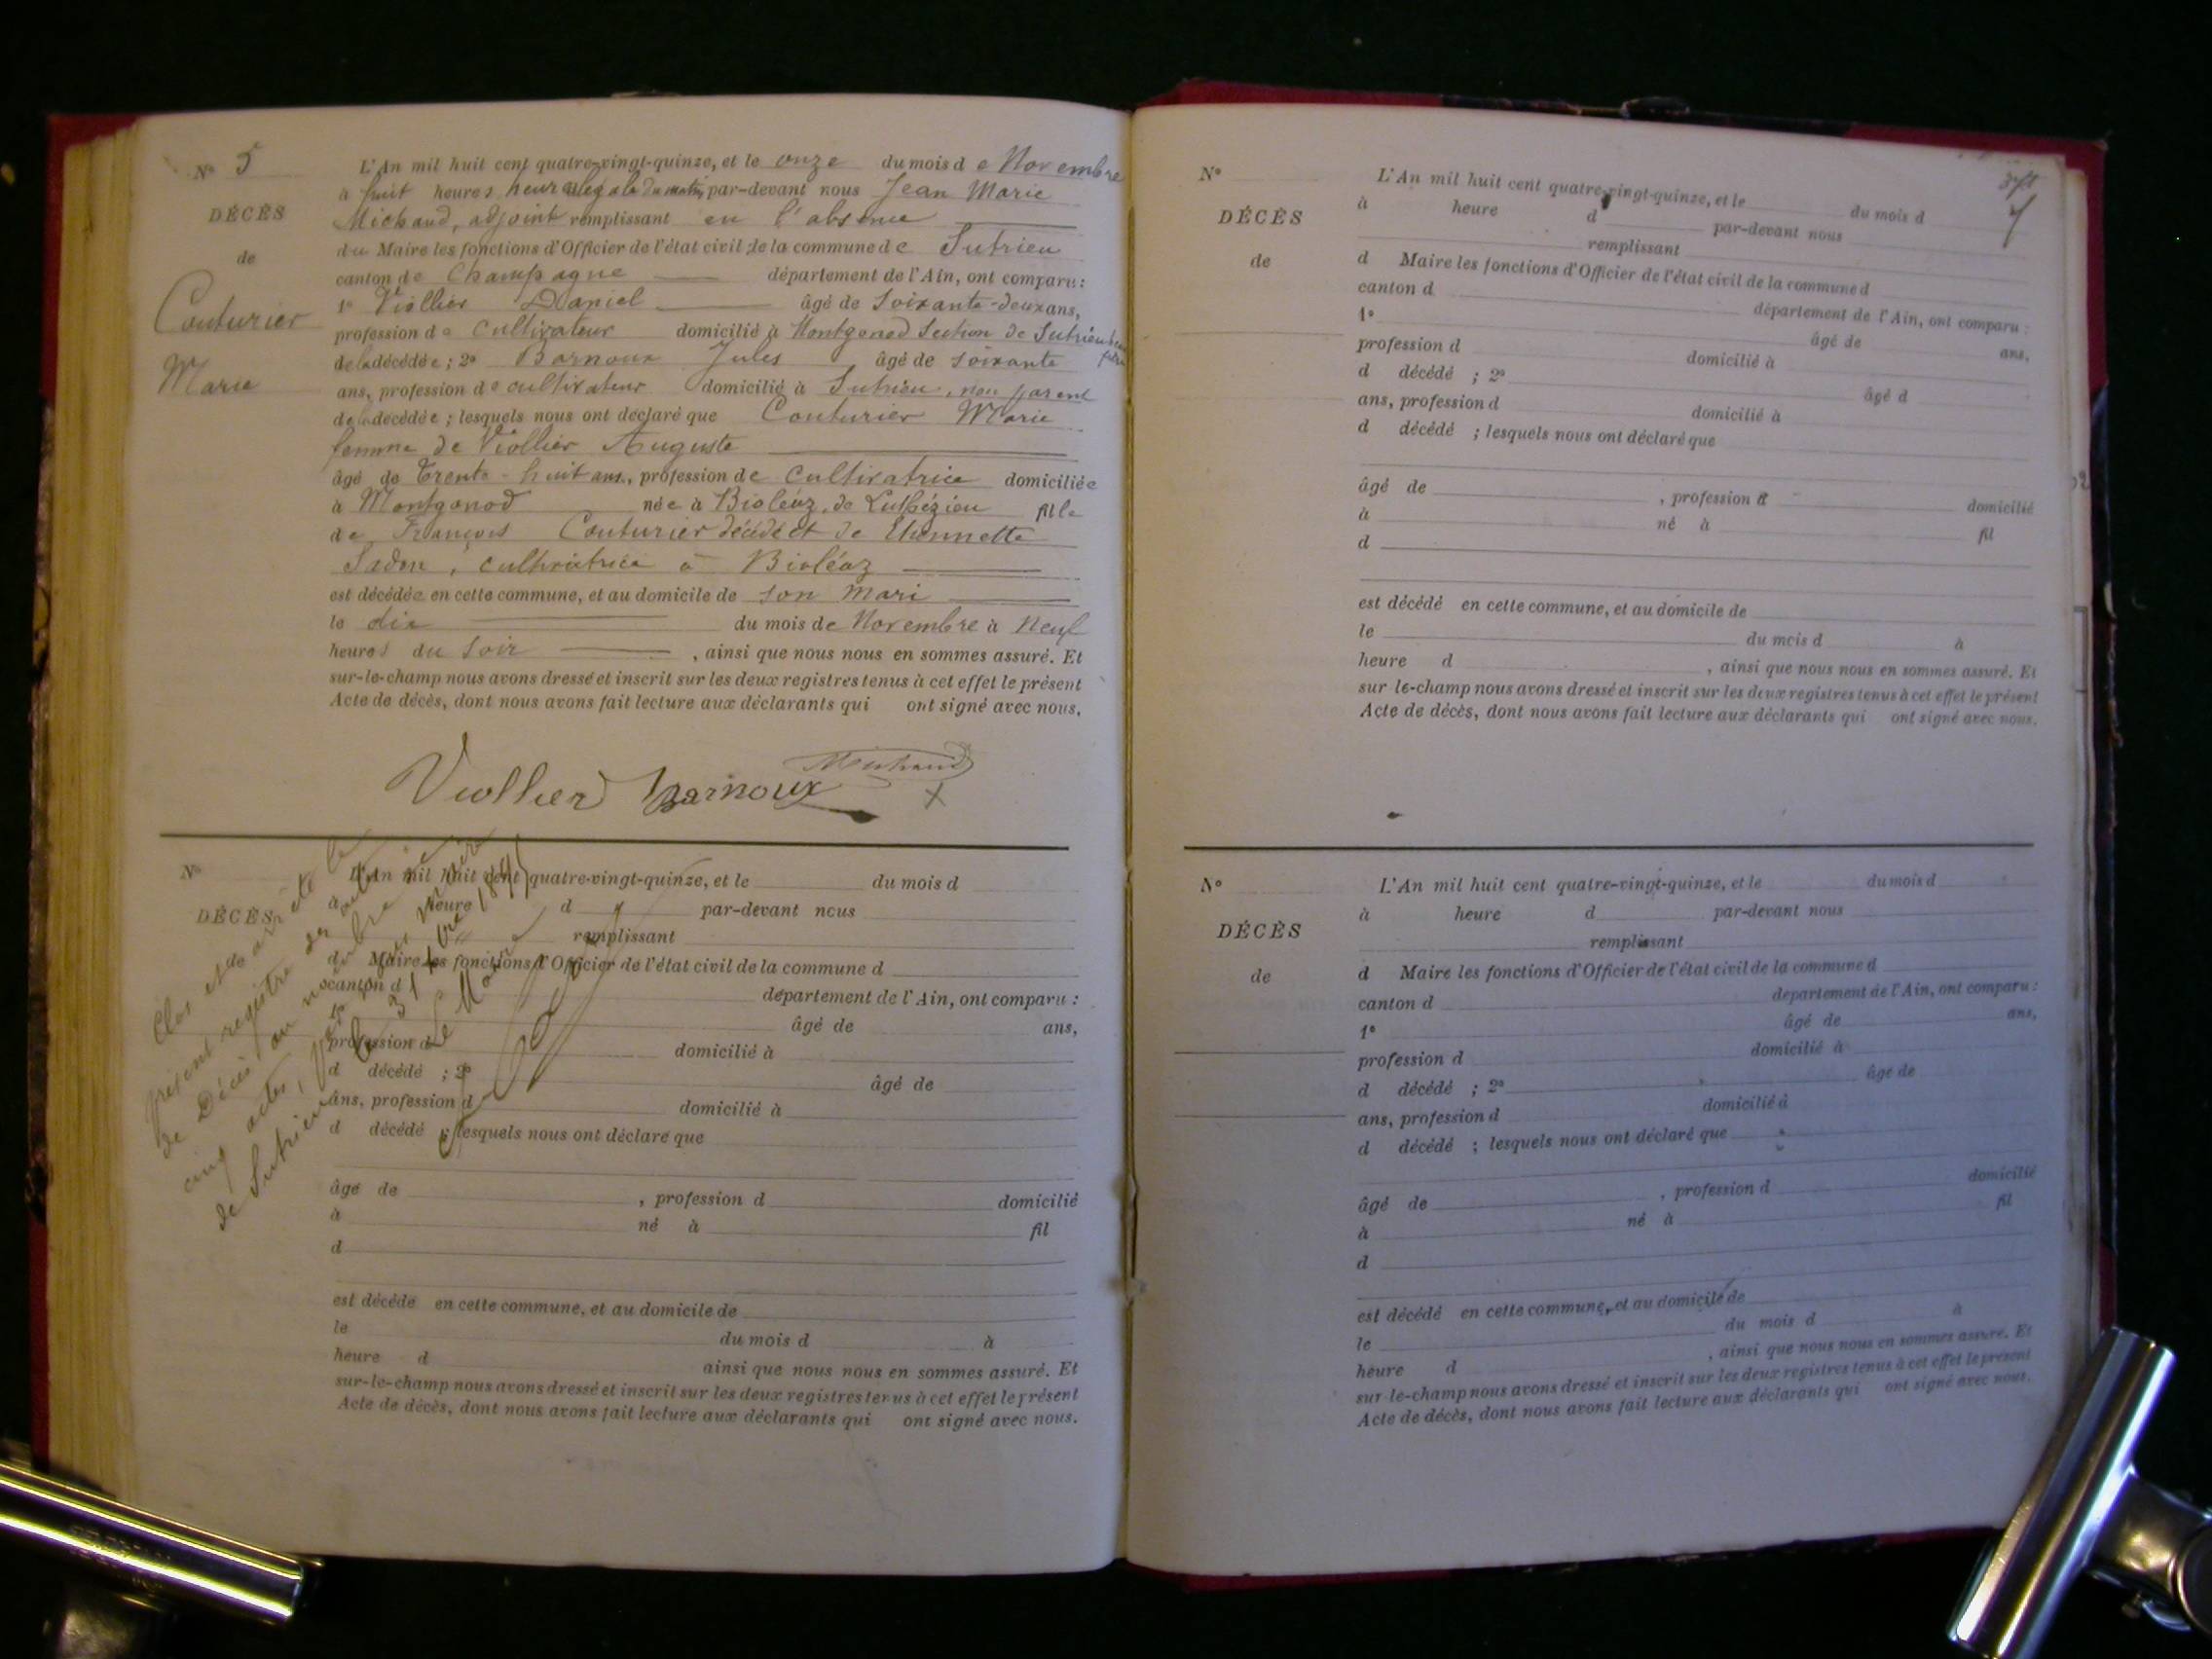 N° 5
DÉCÈS
de
Couturier
Marie
L'An mil huit cent quatre-vingt-quinze, et le onze du mois de Novembre
à huit heures heure légale du matin, par-devant nous Jean Marie
Michaud, adjoint remplissant en l'absence
du Maire les fonctions d'Officier de l'état civil de la commune de Sutrieu
canton de Champagne département de l'Ain, ont comparu :
1° Viollier Daniel âgé de soixante-deux ans,
profession de cultivateur domicilié à Montgonod Section de Sutrieu beau père
de la décédée ; 2° Barnoux Jules âgé de soixante
ans, profession de cultivateur domicilié à Sutrieu, non parent
de la décédée ; lesquels nous ont déclaré que Couturier Marie
femme de Viollier Auguste
âgé de Trente-huit ans, profession de cultivatrice domiciliée
à Montgonod née à Bioléaz, de Luthézieu fille
de François Couturier décédé et de Etiennette
cultivatrice à Bioléaz
est décédée en cette commune, et au domicile de son mari
le dix du mois de Novembre à Neuf
heures du soir , ainsi que nous nous en sommes assuré. Et
sur-le-champ nous avons dressé et inscrit sur les deux registres tenus à cet effet le présent
Acte de décès, dont nous avons fait lecture aux déclarants qui ont signé avec nous.
Viollier Barnoux Michaud
X
N°
DÉCÈS
de
L'An mil huit cent quatre-vingt-quinze, et le du mois d
à heure d par-devant nous
remplissant
d Maire les fonctions d'Officier de l'état civil de la commune d
canton d département de l'Ain, ont comparu :
1° âgé de ans,
profession d domicilié à
d décédé ; 2° âgé de
ans, profession d domicilié à
d décédé ; lesquels nous ont déclaré que
âgé de , profession d domicilié
à né à fil
d
est décédé en cette commune, et au domicile de
le du mois d à
heure d ainsi que nous nous en sommes assuré. Et
sur-le-champ nous avons dressé et inscrit sur les deux registres tenus à cet effet le présent
Acte de décès, dont nous avons fait lecture aux déclarants qui ont signé avec nous.
Clos et arrêté le
présent registre des actes
de Décès au nombre de
cinq actes,
de Sutrieu le 31 Xbre 1895
Le Maire
N°
DÉCÈS
de
L'An mil huit cent quatre-vingt-quinze, et le du mois d
à heure d par-devant nous
remplissant
d Maire les fonctions d'Officier de l'état civil de la commune d
canton d département de l'Ain, ont comparu :
1° âgé de ans,
profession d domicilié à
d décédé ; 2° âgé d
ans, profession d domicilié à
d décédé ; lesquels nous ont déclaré que
âgé de , profession d domicilié
à né à fil
d
est décédé en cette commune, et au domicile de
le du mois d à
heure d , ainsi que nous nous en sommes assuré. Et
sur le-champ nous avons dressé et inscrit sur les deux registres tenus à cet effet le présent
Acte de décès, dont nous avons fait lecture aux déclarants qui ont signé avec nous.
N°
DÉCÈS
de
L'An mil huit cent quatre-vingt-quinze, et le du mois d
à heure d par-devant nous
remplissant
d Maire les fonctions d'Officier de l'état civil de la commune d
canton d département de l'Ain, ont comparu :
1° âgé de ans,
profession d domicilié à
d décédé ; 2° âge de
ans, profession d domicilié à
d décédé ; lesquels nous ont déclaré que
âgé de , profession d domicilié
à né à fil
d
est décédé en cette commune, et au domicile de
le du mois d à
heure d , ainsi que nous nous en sommes assuré. Et
sur le-champ nous avons dressé et inscrit sur les deux registres tenus à cet effet le présent
Acte de décès, dont nous avons fait lecture aux déclarants qui ont signé avec nous.